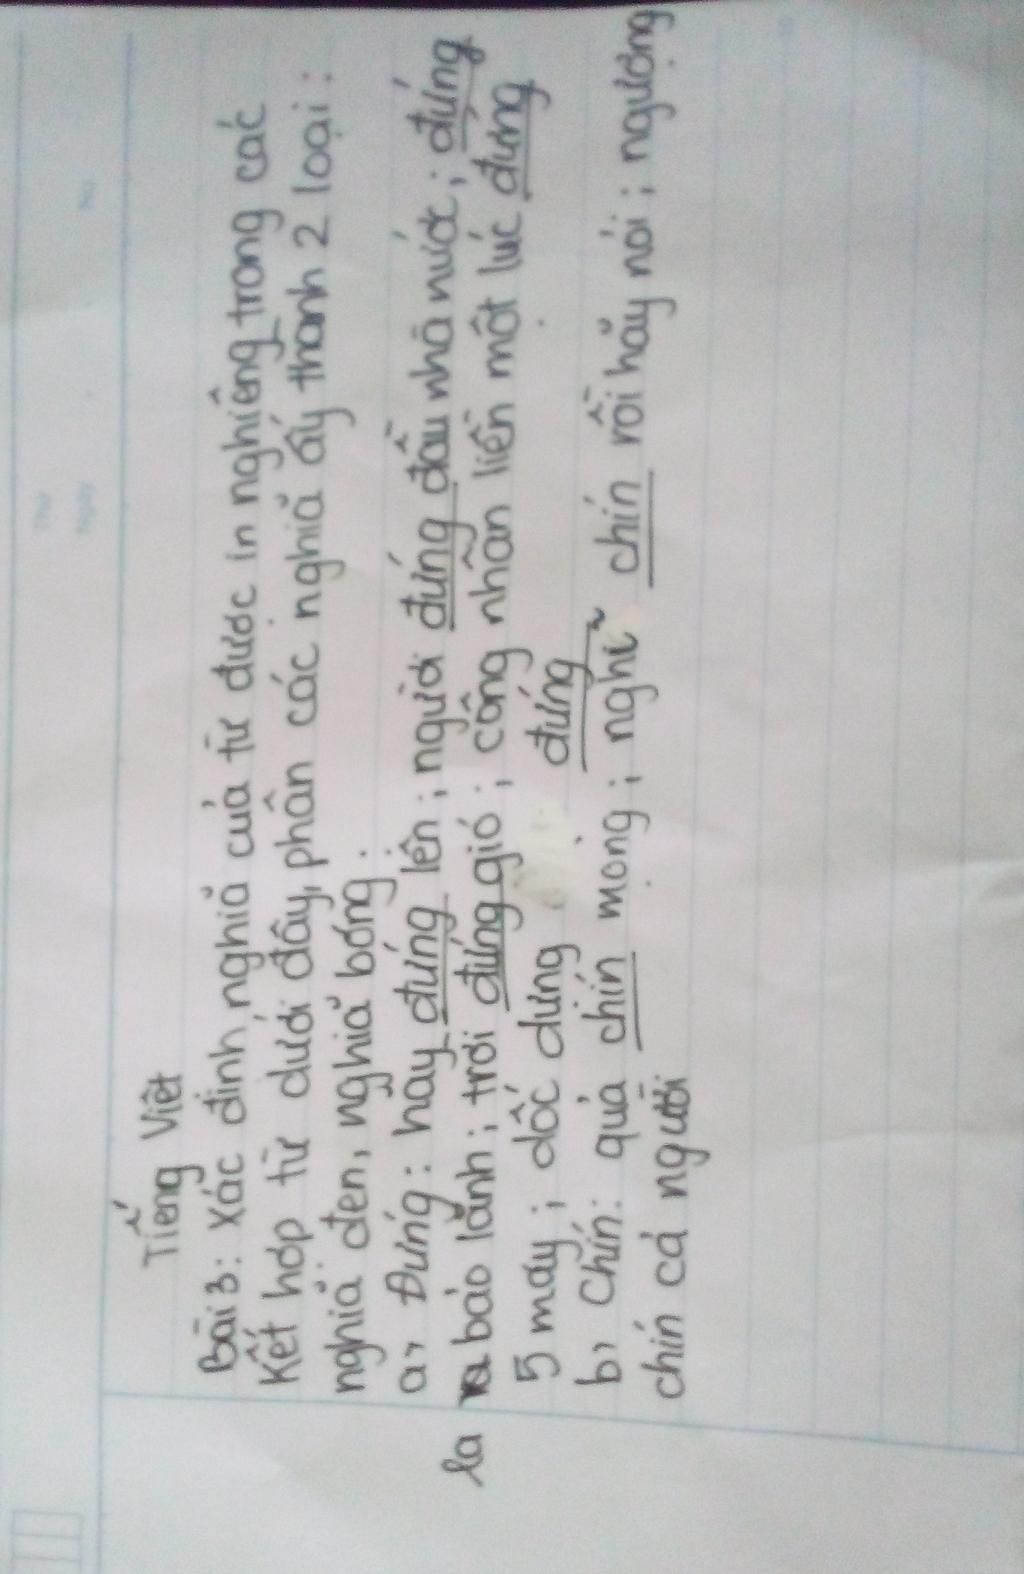 Tiếng Việt
Bài 3: Xác định nghĩa của từ được in nghiêng trong các
Kết hợp từ dưới đây, phân các nghĩa ấy thành 2 loại:
nghĩa đen, nghĩa bóng.
a, Đứng: hãy đứng lên; người đứng đầu nhà nước; đứng
ra bảo lãnh; trời đứng gió; công nhân liên một lúc đứng
5 máy; dốc dựng đứng
b, Chín: quả chín mọng; nghĩ chín rồi hãy nói; ngượng
chín cả người